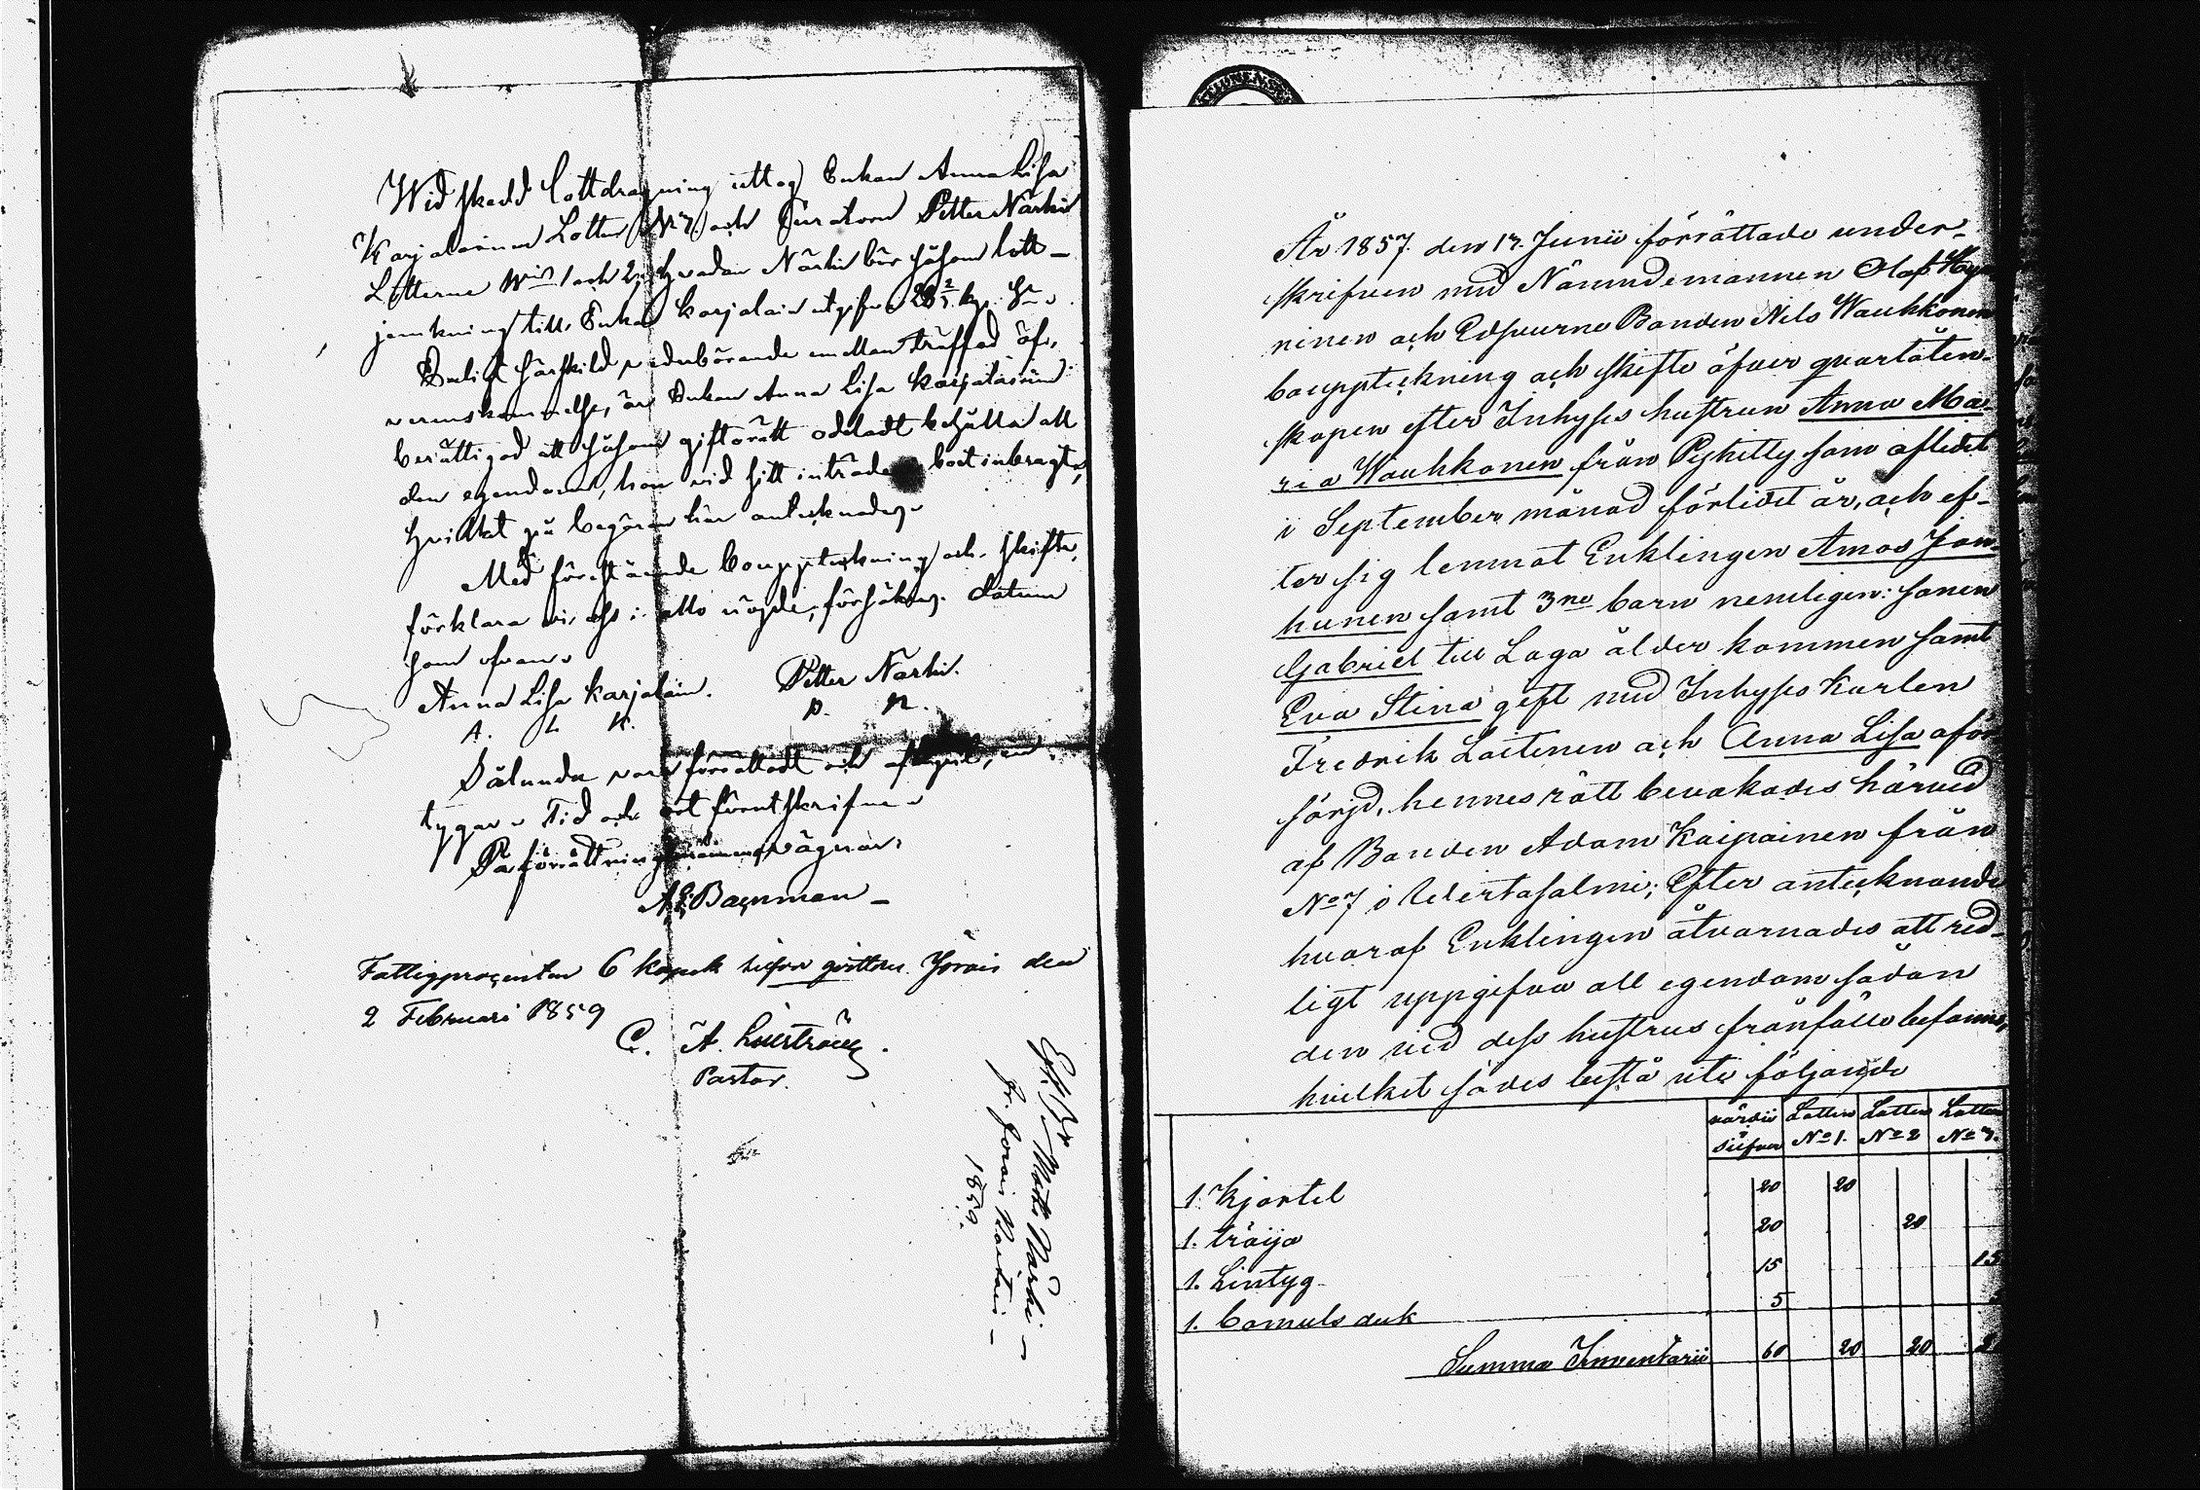 Wid skedd lottdragning uttog Enkan Anna Lisa
Karjalainen Lotten N 3. och Curatorn Petter Närhi
Lotterne N:ris 1 och 2, hvadan Närhi bör såsom lott-
jemkning till Enkan Karjalain utgifva 28 2/3 kp. S:r
Enligt särskild vederbörande emellan träffad öf-
verenskommelse, är Enkan Anna Lisa Karjalainen
berättigad att såsom giftorätt odeladt behålla all
den egendom, hon vid sitt inträde i boet inbragt,
hvilket på begäran här antecknades.
Med förestående bouppteckning och skifte,
förklara vi oss i allo nöjde, försäkra. Datum
som ofvan.
Anna Lisa Karjalain. Petter Närhi.
A. L. K. P. N.
Sålunda vara förrättadt och aflupit, be-
tygar. Tid och ort förutskrifne.
På förrättningsmännens vägnar,
A E Bagnman
Fattigprocenten 6 kopek silfver qvitteras Jorois den
2 Februari 1859
C. A.
Pastor.
Matts Närhi
fr. Jorois
1859.
År 1857. den 17. Junii förrättade under-
skrifven med Nämndemannen Olof
ninen och Edsvurne Bonden Nils Wauhkonen
bouppteckning och skifte öfver qvarlåten-
skapen efter Inhyses hustrun Anna Ma-
ria Wauhkonen från Pyhitty som aflidit
i September månad förlidit år, och ef-
ter sig lemnat Enklingen Amos Jan-
hunen samt 3ne barn nemligen: sonen
Gabriel till Laga ålder kommen samt
Eva Stina gift med Inhyses Karlen
Fredrik Laitenen och Anna Lisa oför-
sörjd, hennes rätt bevakades härvid
af Bonden Adam Kaipainen från
No 7 i Wirtasalmi; Efter antecknande
hvaraf Enklingen åtvarnades att red-
ligt uppgifva all egendom sådan
den vid dess hustrus frånfälle befanns,
hvilket sades bestå uti följande
värdii Lotten Lotten Lotten
silfver No 1. No 2 No 3.
1. Kjortel 20 20
1. tröija 20 20
1. Lintyg 15 15
1. bomuls duk 5
Summa Inventarii 60 20 20 2